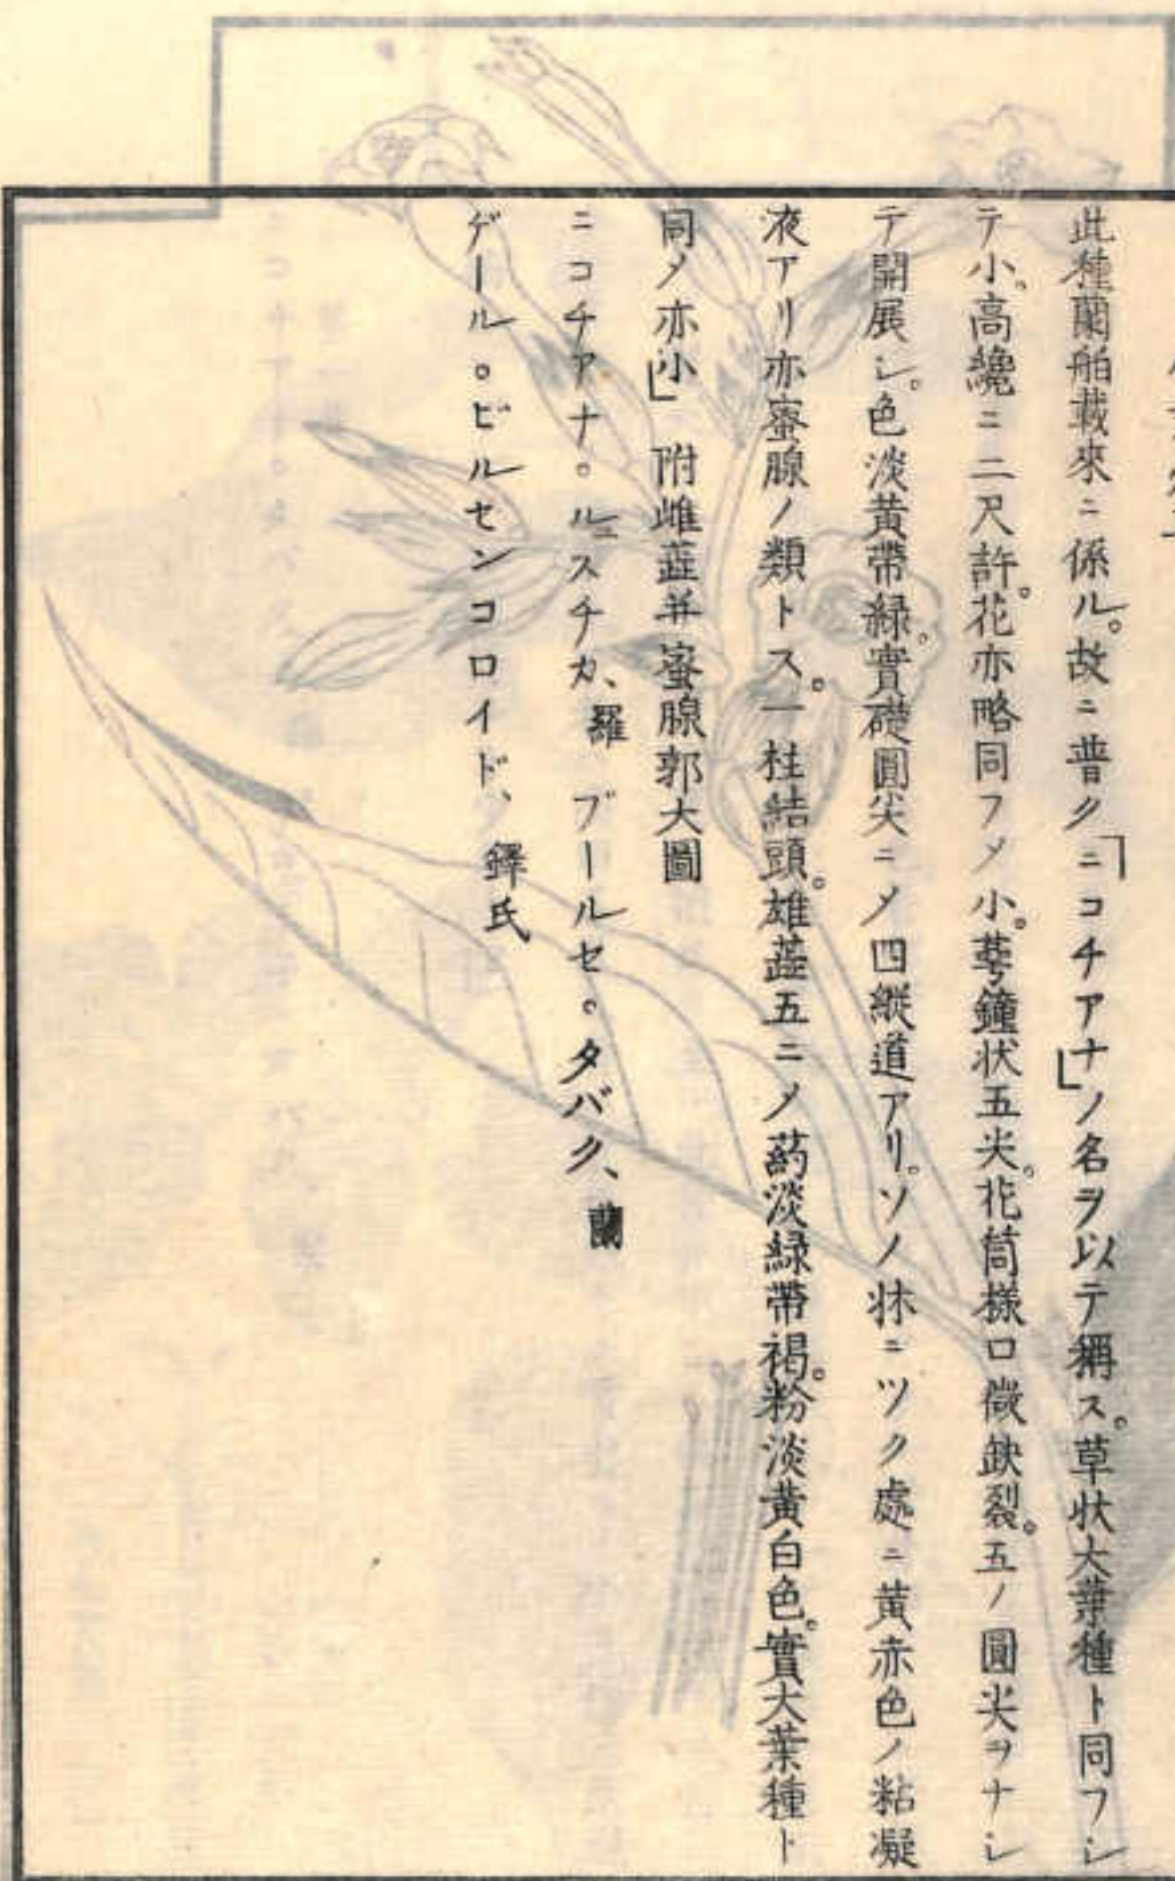 此種蘭舶載來ニ係ル。故ニ普ク「ニコチアナ」ノ名ヲ以テ稱ス。草状大葉種ト同フシ
テ小。高纔ニ二尺許。花亦略同フメ小。萼鐘状五尖。花筒様口微缺裂。五ノ圓尖ヲナシ
テ開展シ。色淡黄帶緑。實礎圓尖ニメ四縦道アリ。ソノ牀ニツク處ニ黄赤色ノ粘凝
液アリ亦蜜腺ノ類トス。一柱結頭。雄蕋五ニメ葯淡緑帶褐。粉淡黄白色。實大葉種ト
同メ亦小」附雌蕋并蜜腺郭大圖
ニコチアナ。ルュスチカ、羅 ブールセ。タバク、蘭
デール。ビルセンコロイド、鐸氏